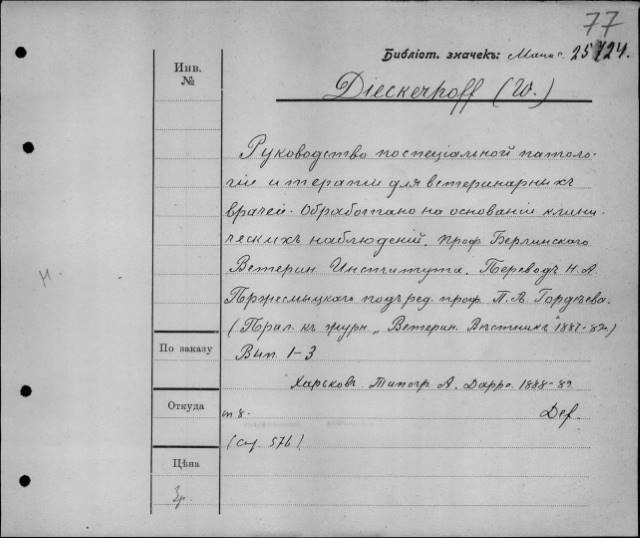 77
Библіот. значекъ: Манос. 25724.
Инв. №
Dieckerhoff (W.)
Руководство по спеціальной патоло-
гіи и терапіи для ветеринарныхъ
врачей. Обработано на основаніи клини-
ческихъ наблюденій. проф. Берлинскаго
Н.
Ветерин. Института. Переводъ Н. А.
Пржесмыцкаго подъ ред. проф. П. А. Гордѣева.
(Прил. къ журн. „Ветерин. Вѣстникъ"
По заказу
Вып. 1-3
Харьковъ Типогр. А. Дарре. 1888-89
Откуда
m 8. Def.
(Стр. 576)
Цѣна
3р.